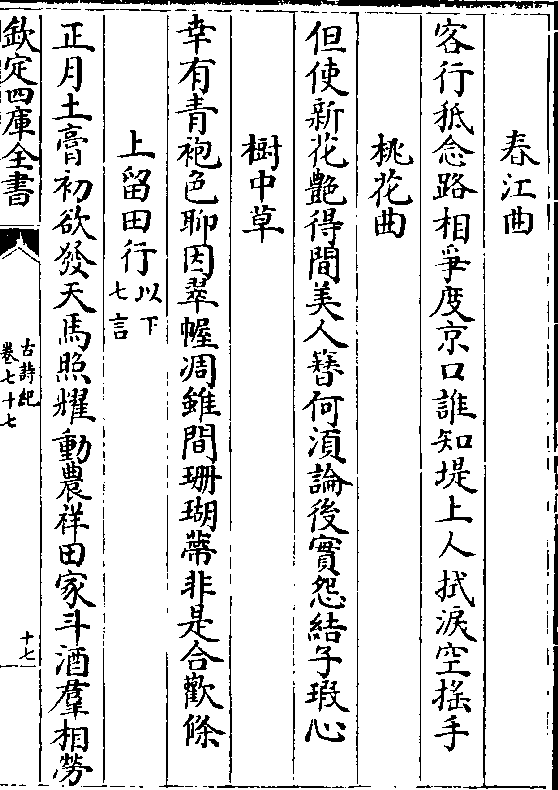 春江曲
客行秪念路相爭度京口誰知堤上人拭淚空搖手
桃花曲
但使新花艷得間美人簪何須論後實怨結子瑕心
樹中草
幸有青袍色聊因翠幄凋雖間珊瑚蔕非是合歡條
上留田行以下七言
正月土膏初欲發天馬照耀動農祥田家斗酒羣相勞
欽定四庫全書
古詩紀
卷七十七
十七